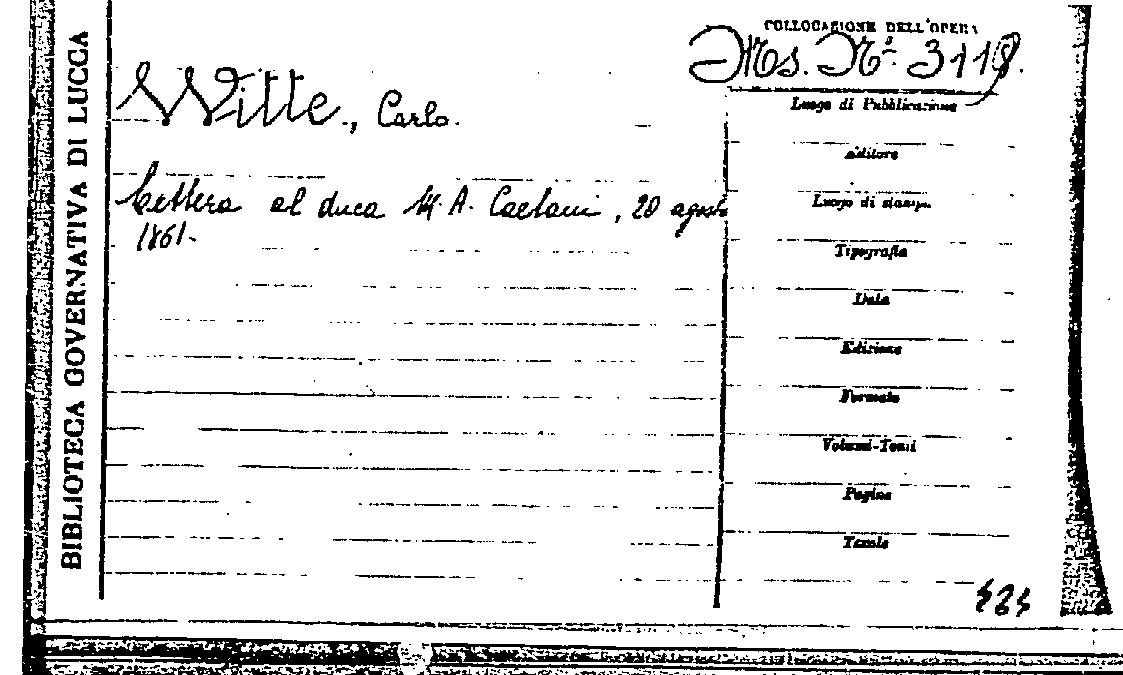 BIBLIOTECA GOVERNATIVA DI LUCCA
COLLOCAZIONE DELL'OPERA
Ms. N.º 3118.
Witte, Carlo.
Lettera al duca M. A. Caetani, 20 agosto
1861.
Luogo di Pubblicazione
Editore
Luogo di stampa
Tipografia
Data
Edizione
Formato
Volumi-Tomi
Pagine
Tavole